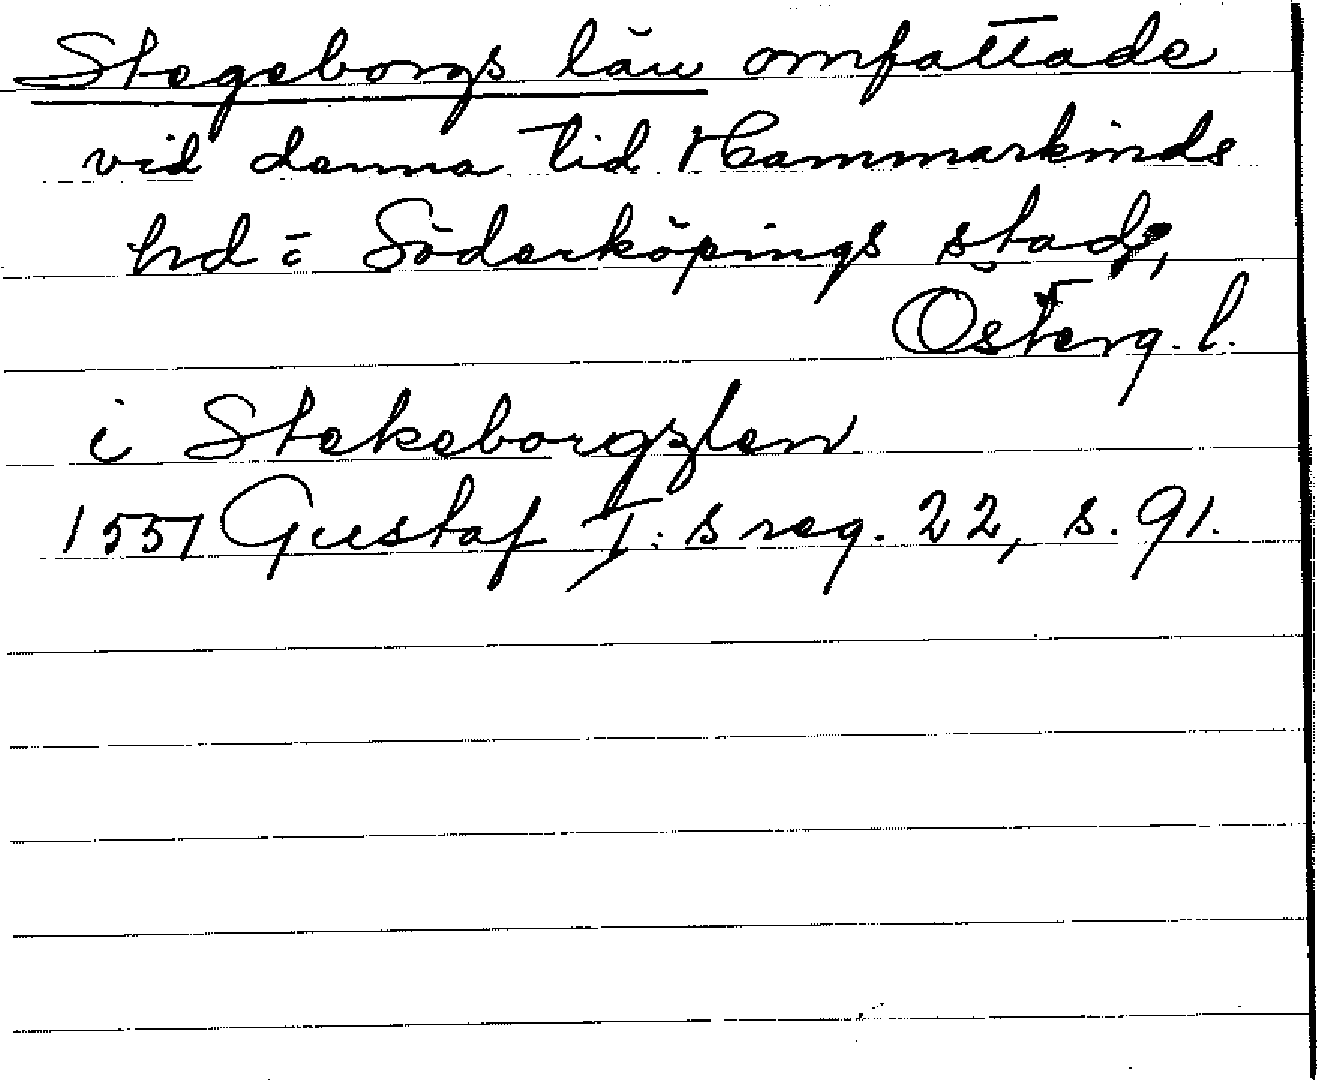 Stegeborgs län omfattade
vid denna tid Hammarkinds
hd = Söderköpings stad,
Österg. l.
i Stekeborgzlen
1551 Gustaf I:s reg. 22, s. 91.